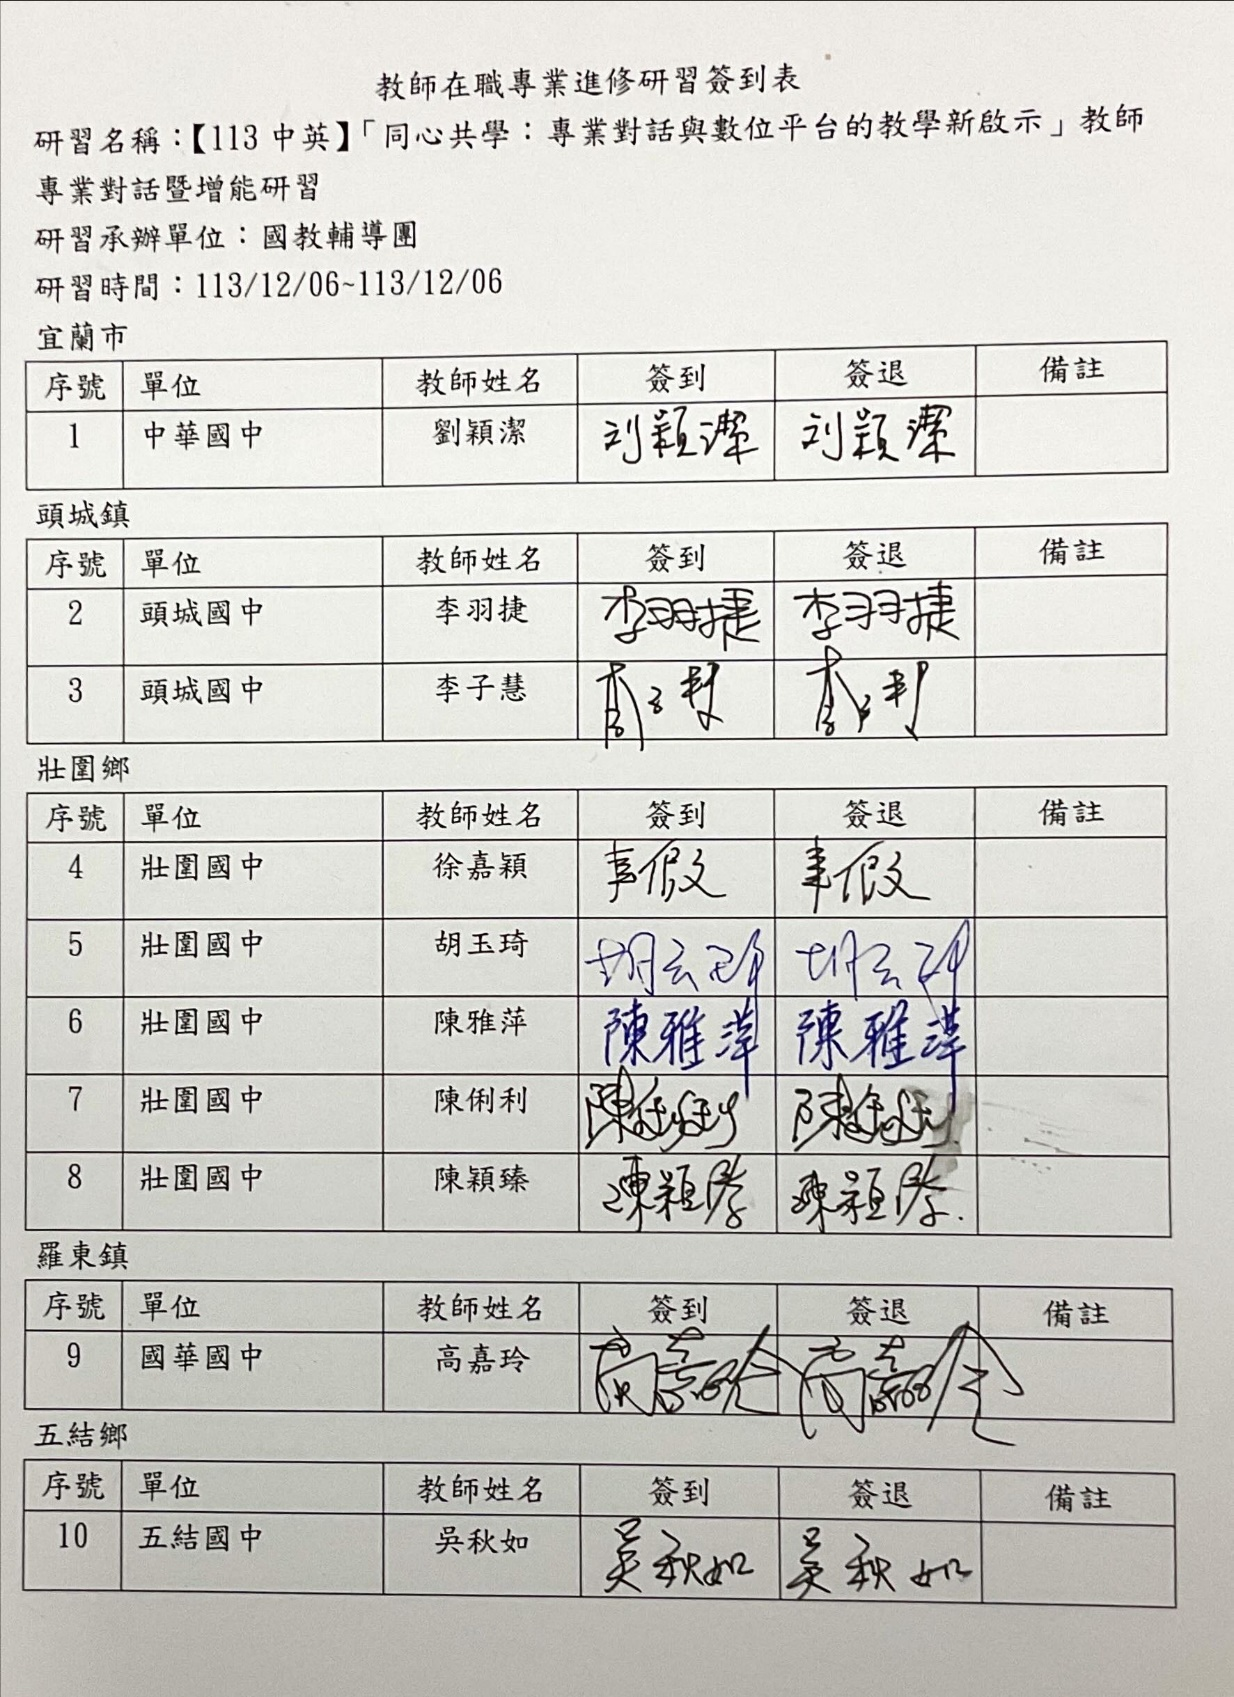 教師在職專業進修研習簽到表
研習名稱：【113中英】「同心共學：專業對話與數位平台的教學新啟示」教師
專業對話暨增能研習
研習承辦單位：國教輔導團
研習時間：113/12/06~113/12/06
宜蘭市
序號 單位 教師姓名 簽到 簽退 備註
1 中華國中 劉穎潔 刘穎潔 刘穎潔
頭城鎮
序號 單位 教師姓名 簽到 簽退 備註
2 頭城國中 李羽捷 李羽捷 李羽捷
3 頭城國中 李子慧
壯圍鄉
序號 單位 教師姓名 簽到 簽退 備註
4 壯圍國中 徐嘉穎 事假 事假
5 壯圍國中 胡玉琦
6 壯圍國中 陳雅萍 陳雅萍 陳雅萍
7 壯圍國中 陳俐利
8 壯圍國中 陳穎臻 陳穎臻 陳穎臻
羅東鎮
序號 單位 教師姓名 簽到 簽退 備註
9 國華國中 高嘉玲 高嘉玲 高嘉玲
五結鄉
序號 單位 教師姓名 簽到 簽退 備註
10 五結國中 吳秋如 吳秋如 吳秋如